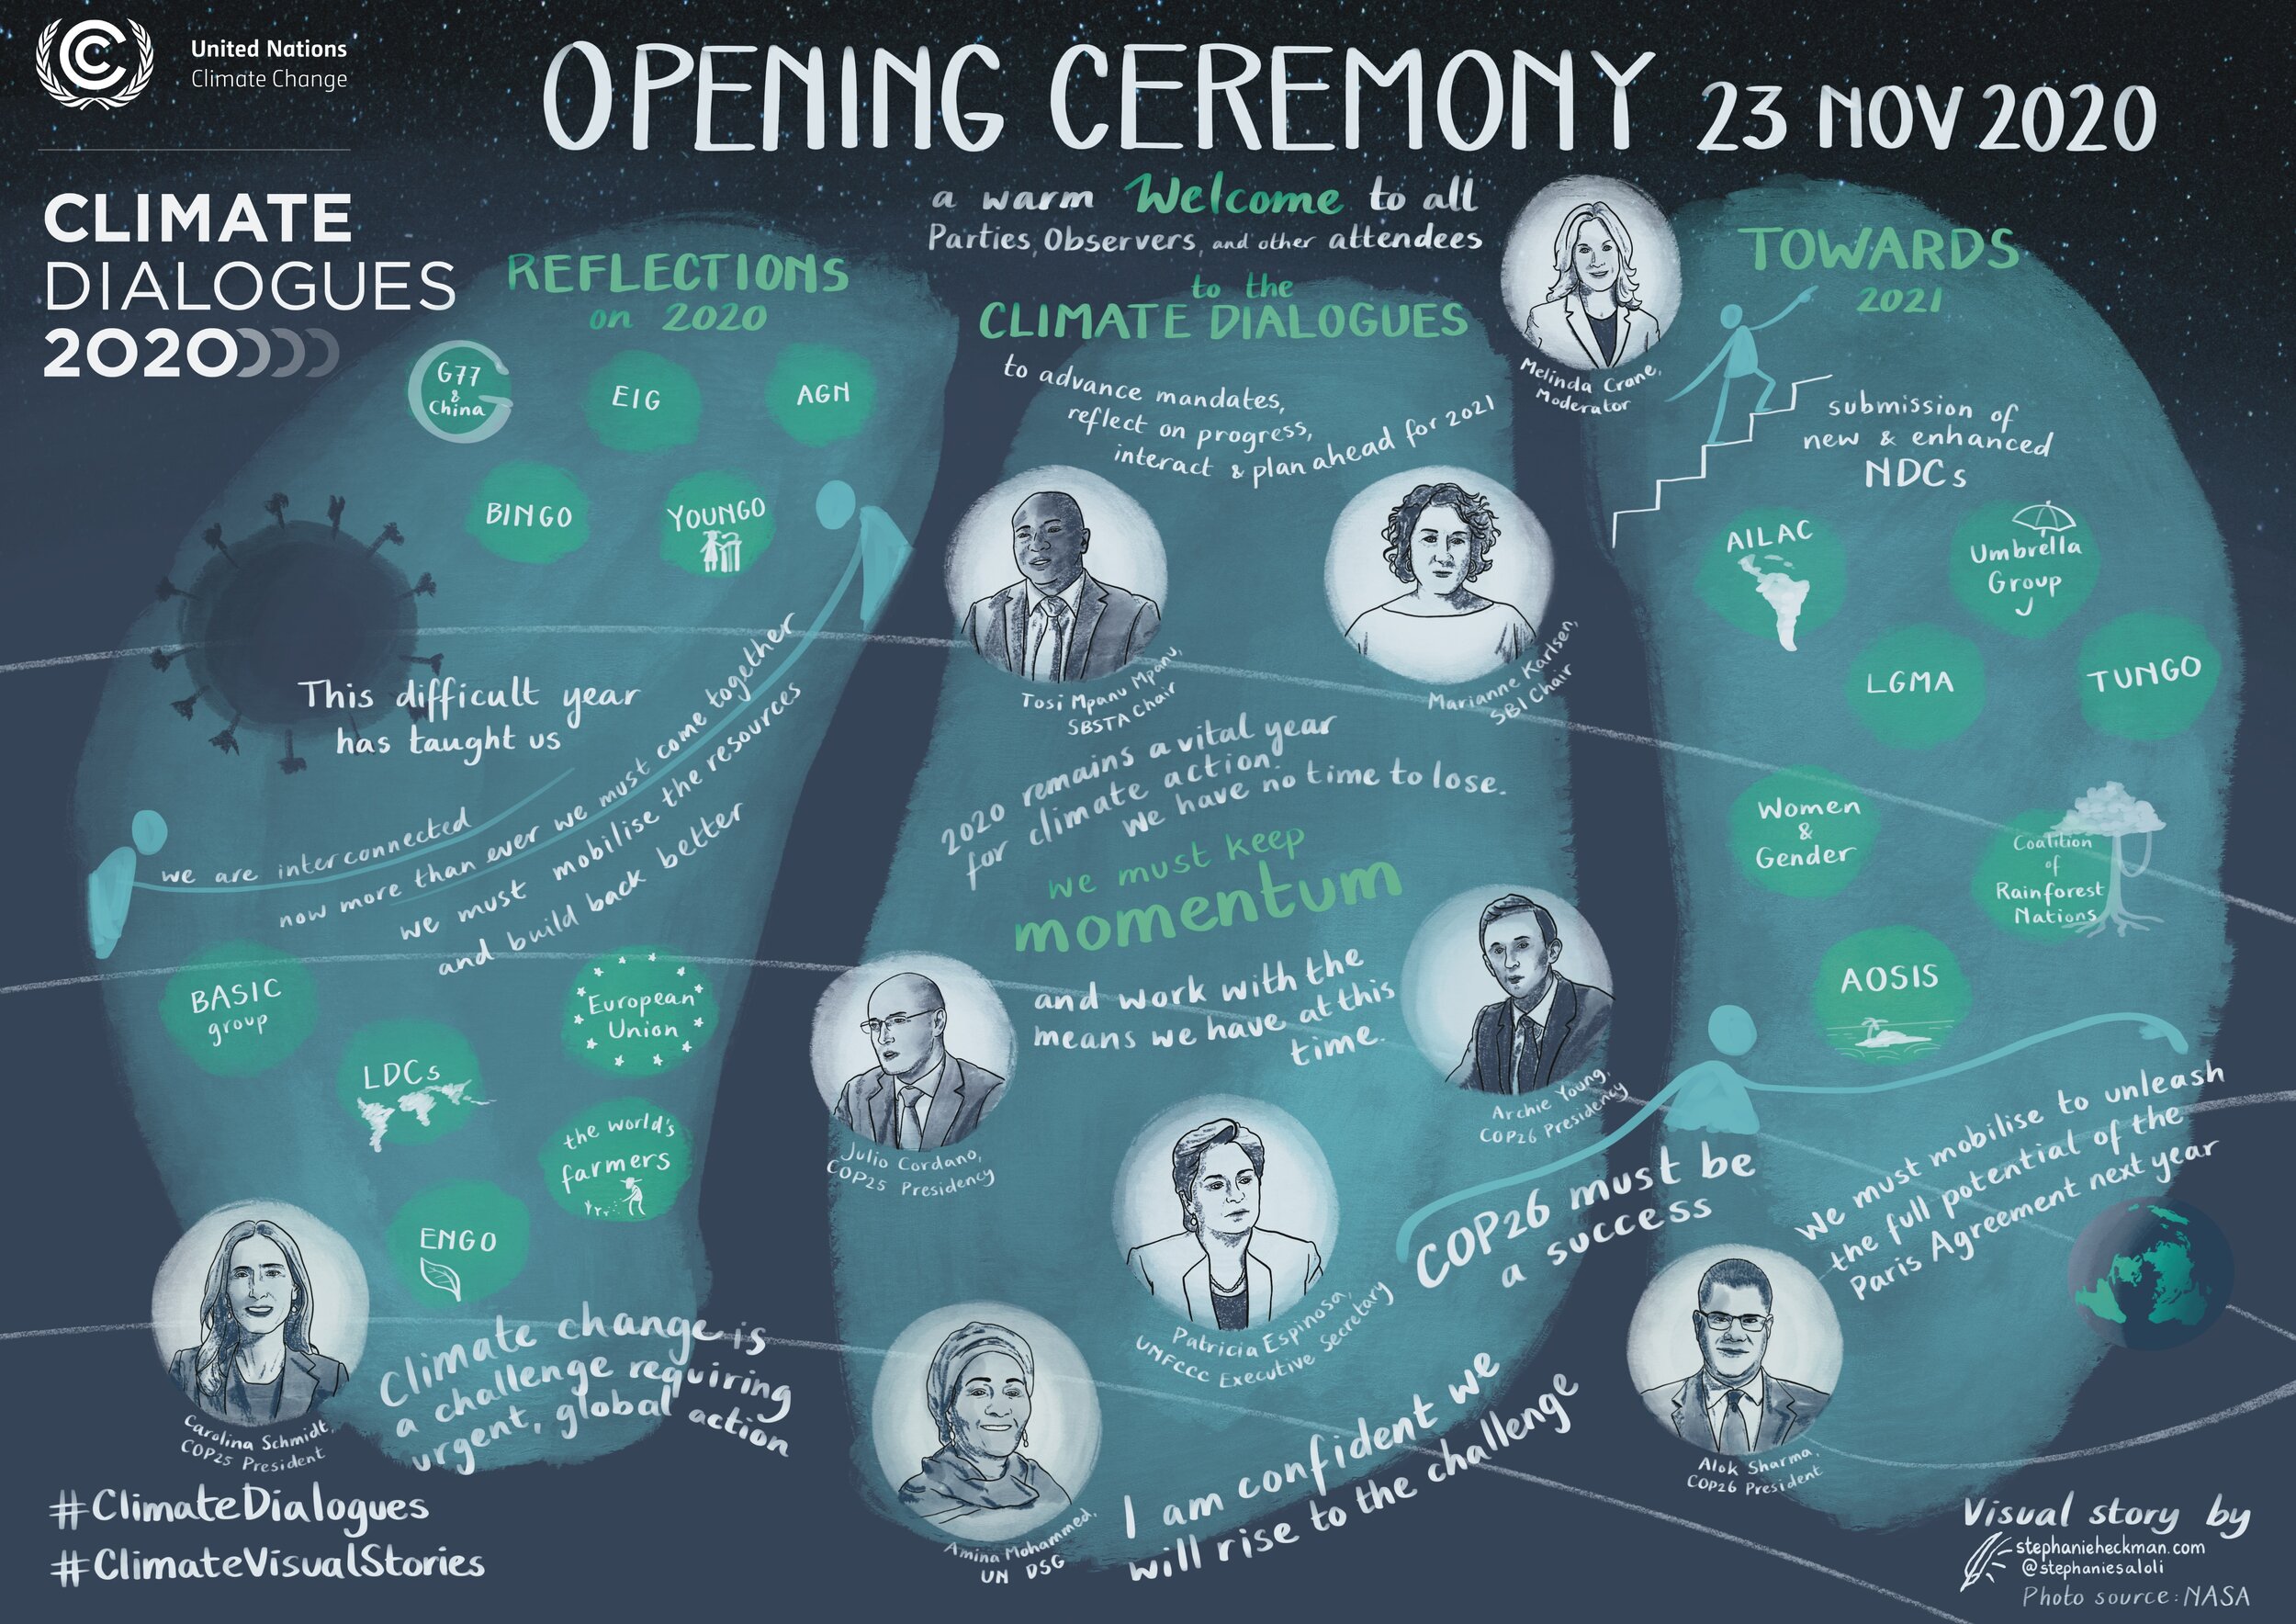 United Nations
Climate Change
CLIMATE
DIALOGUES
2020
OPENING CEREMONY 23 NOV 2020
a warm Welcome to all
Parties, Observers, and other attendees
to the
CLIMATE DIALOGUES
to advance mandates,
reflect on progress,
interact & plan ahead for 2021
Melinda Crane,
Moderator
REFLECTIONS
on 2020
G77
&
China
EIG
AGN
BINGO
YOUNGO
This difficult year
has taught us
we are interconnected
now more than ever we must come together
we must mobilise the resources
and build back better
BASIC
group
European
Union
LDCs
the world's
farmers
ENGO
Carolina Schmidt,
COP25 President
Climate change is
a challenge requiring
urgent, global action
#ClimateDialogues
#ClimateVisualStories
Tosi Mpanu Mpanu,
SBSTA Chair
Marianne Karlsen,
SBI Chair
2020 remains a vital year
for climate action.
we have no time to lose.
we must keep
momentum
and work with the
means we have at this
time.
Julio Cordano,
COP25 Presidency
Archie Young,
COP26 Presidency
Patricia Espinosa,
UNFCCC Executive Secretary
Amina Mohammed,
UN DSG
I am confident we
will rise to the challenge
TOWARDS
2021
submission of
new & enhanced
NDCs
AILAC
Umbrella
Group
LGMA
TUNGO
Women
&
Gender
Coalition
of
Rainforest
Nations
AOSIS
COP26 must be
a success
We must mobilise to unleash
the full potential of the
Paris Agreement next year
Alok Sharma,
COP26 President
Visual story by
stephanieheckman.com
@stephaniesaloli
Photo source: NASA